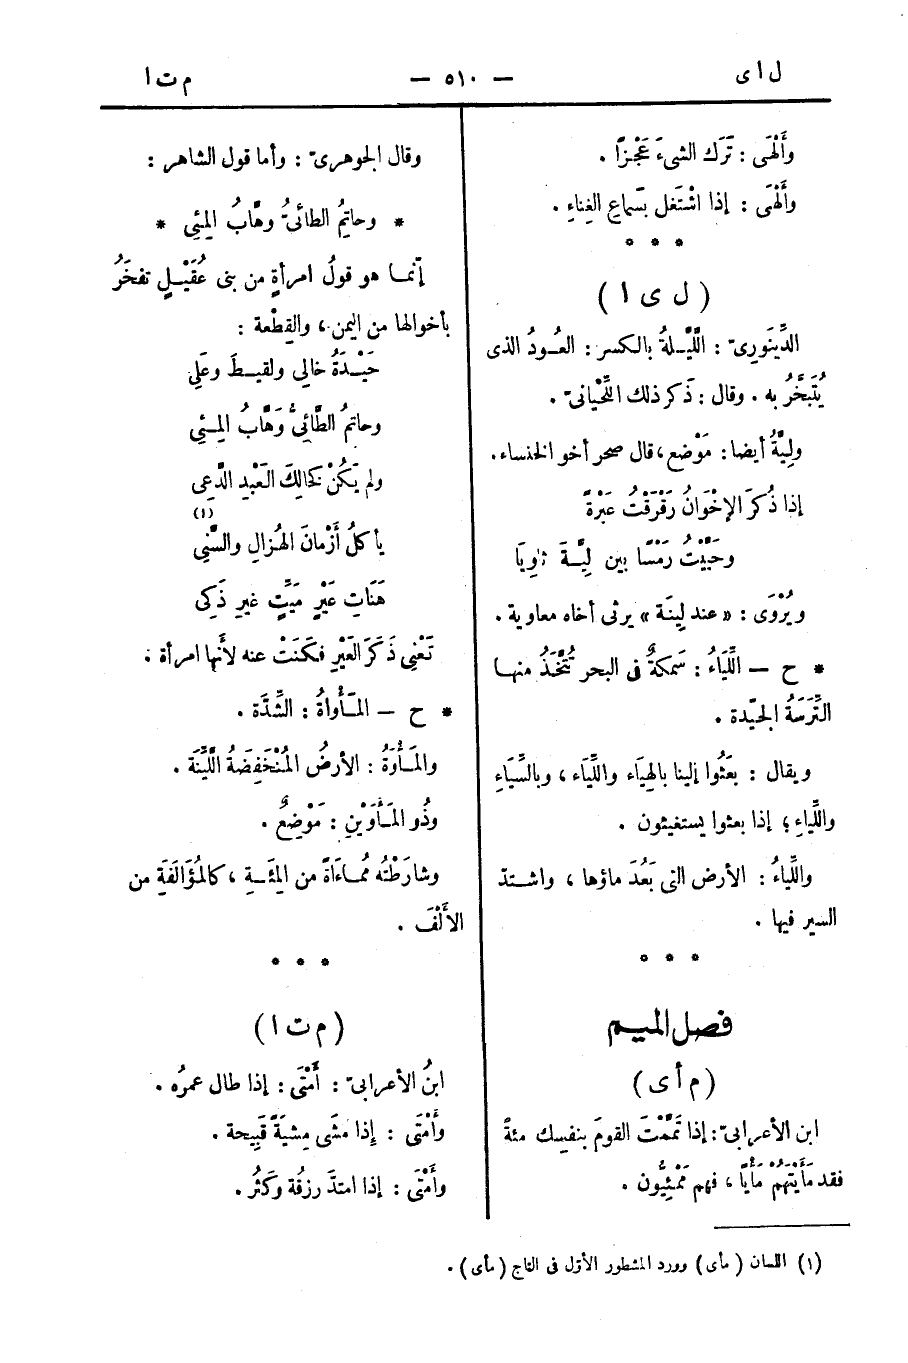 ل أ ى
— ٥١٠ —
م ت ا
وأَلْهَى : تَرَك الشىءَ عَجْزًا .
وأَلْهَى : إذا اشْتَغل بسَماعِ الغِناءِ .
* * *
( ل ى ا )
الدِّينَورِىّ : اللِّيَّــةُ بالكسر : العُــودُ الذى
يُتَبخَّرُ به . وقال : ذَكر ذلك اللِّحْيانىّ .
ولِيَّةُ أيضا : مَوْضع ، قال صخر أخو الخنساء .
إذا ذُكرَ الإخْوَانُ رَقْرَقْتُ عَبْرةً
وحَيَّيْتُ رَمْسًا بين لِيَّــةَ ثاوِيَا
ويُرْوَى : « عند لِينَة » يرثى أخاه معاوية .
* ح — اللِّيَاءُ : سَمكةٌ فى البحر تُتَّخَذُ منهــا
التِّرَسَةُ الجَيّدة .
ويقال : بعَثُوا إلينا بالهِيَاء واللِّيَاء ، وبالسِّيَاءِ
واللِّياءِ ؛ إذا بعثوا يستغيثون .
واللِّياءُ : الأرض التى بَعُدَ ماؤها ، واشــتد
السير فيها .
* * *
فصل الميــم
( م أ ى )
ابن الأعرابىّ : إذا تَمَّمْتَ القومَ بنفسِك مئةً
فقد مَأَيْتَهُمْ مَأْيًا ، فهم مَمْئِيُّون .
وقال الجوهرىّ : وأما قول الشاعر :
* وحاتِمُ الطائىُّ وهَّابُ المِئِى *
إنّمــا هو قولُ امرأةٍ من بنى عُقَيْــلٍ تفخَرُ
بأخوالها من اليمن ، والقِطْعة :
حَيْــدَةُ خالِى ولقيــطَ وعَلِى
وحاتِمُ الطَّائىُّ وَهَّابُ المِــئِى
ولم يَكُنْ كخالِكَ العَبْدِ الدَّعِى
يأكلُ أَزْمانَ الهُزالِ والسِّنِى (١)
هَنَاتِ عَيْرٍ مَيِّتٍ غيرِ ذَكِى
تَعْنِى ذَكَرَ العَيْرِ فكَنَتْ عنه لأنَّها امرأة .
* ح — المَــأْواةُ : الشِّدَّة .
والمَــأْوَةُ : الأرضُ المُنْخَفِضَةُ اللَّيِّنَة .
وذُو المَــأْوَيْنِ : مَوْضِعٌ .
وشارَطْتُه مُمــاءَاةً من المِئَــةِ ، كالمُؤَالَفَةِ من
الأَلْفَ .
* * *
( م ت ا )
ابنُ الأعرابىّ : أَمْتَى : إذا طال عمرُه .
وأَمْتَى : إذا مشَى مِشيَةً قَبِيحة .
وأَمْتَى : إذا امتدَّ رزقُه وكَثُر .
(١) اللسان ( مأى ) وورد المشطور الأوّل فى التاج ( مأى ) .